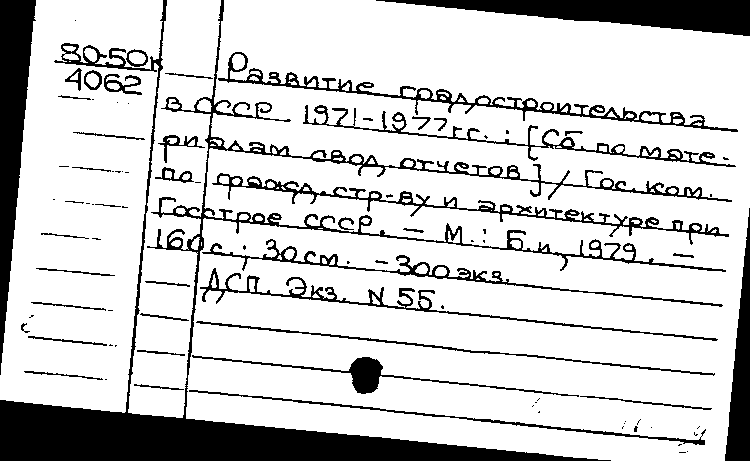 80-50к
4062
Развитие градостроительства
в СССР. 1971-1977 гг. : [Сб. по мате-
риалам свод. отчетов] / Гос. ком.
по гражд. стр-ву и архитектуре при
Госстрое СССР. – М.: Б.и., 1979. –
160 с.; 30 см. – 300 экз.
ДСП. Экз. N 55.